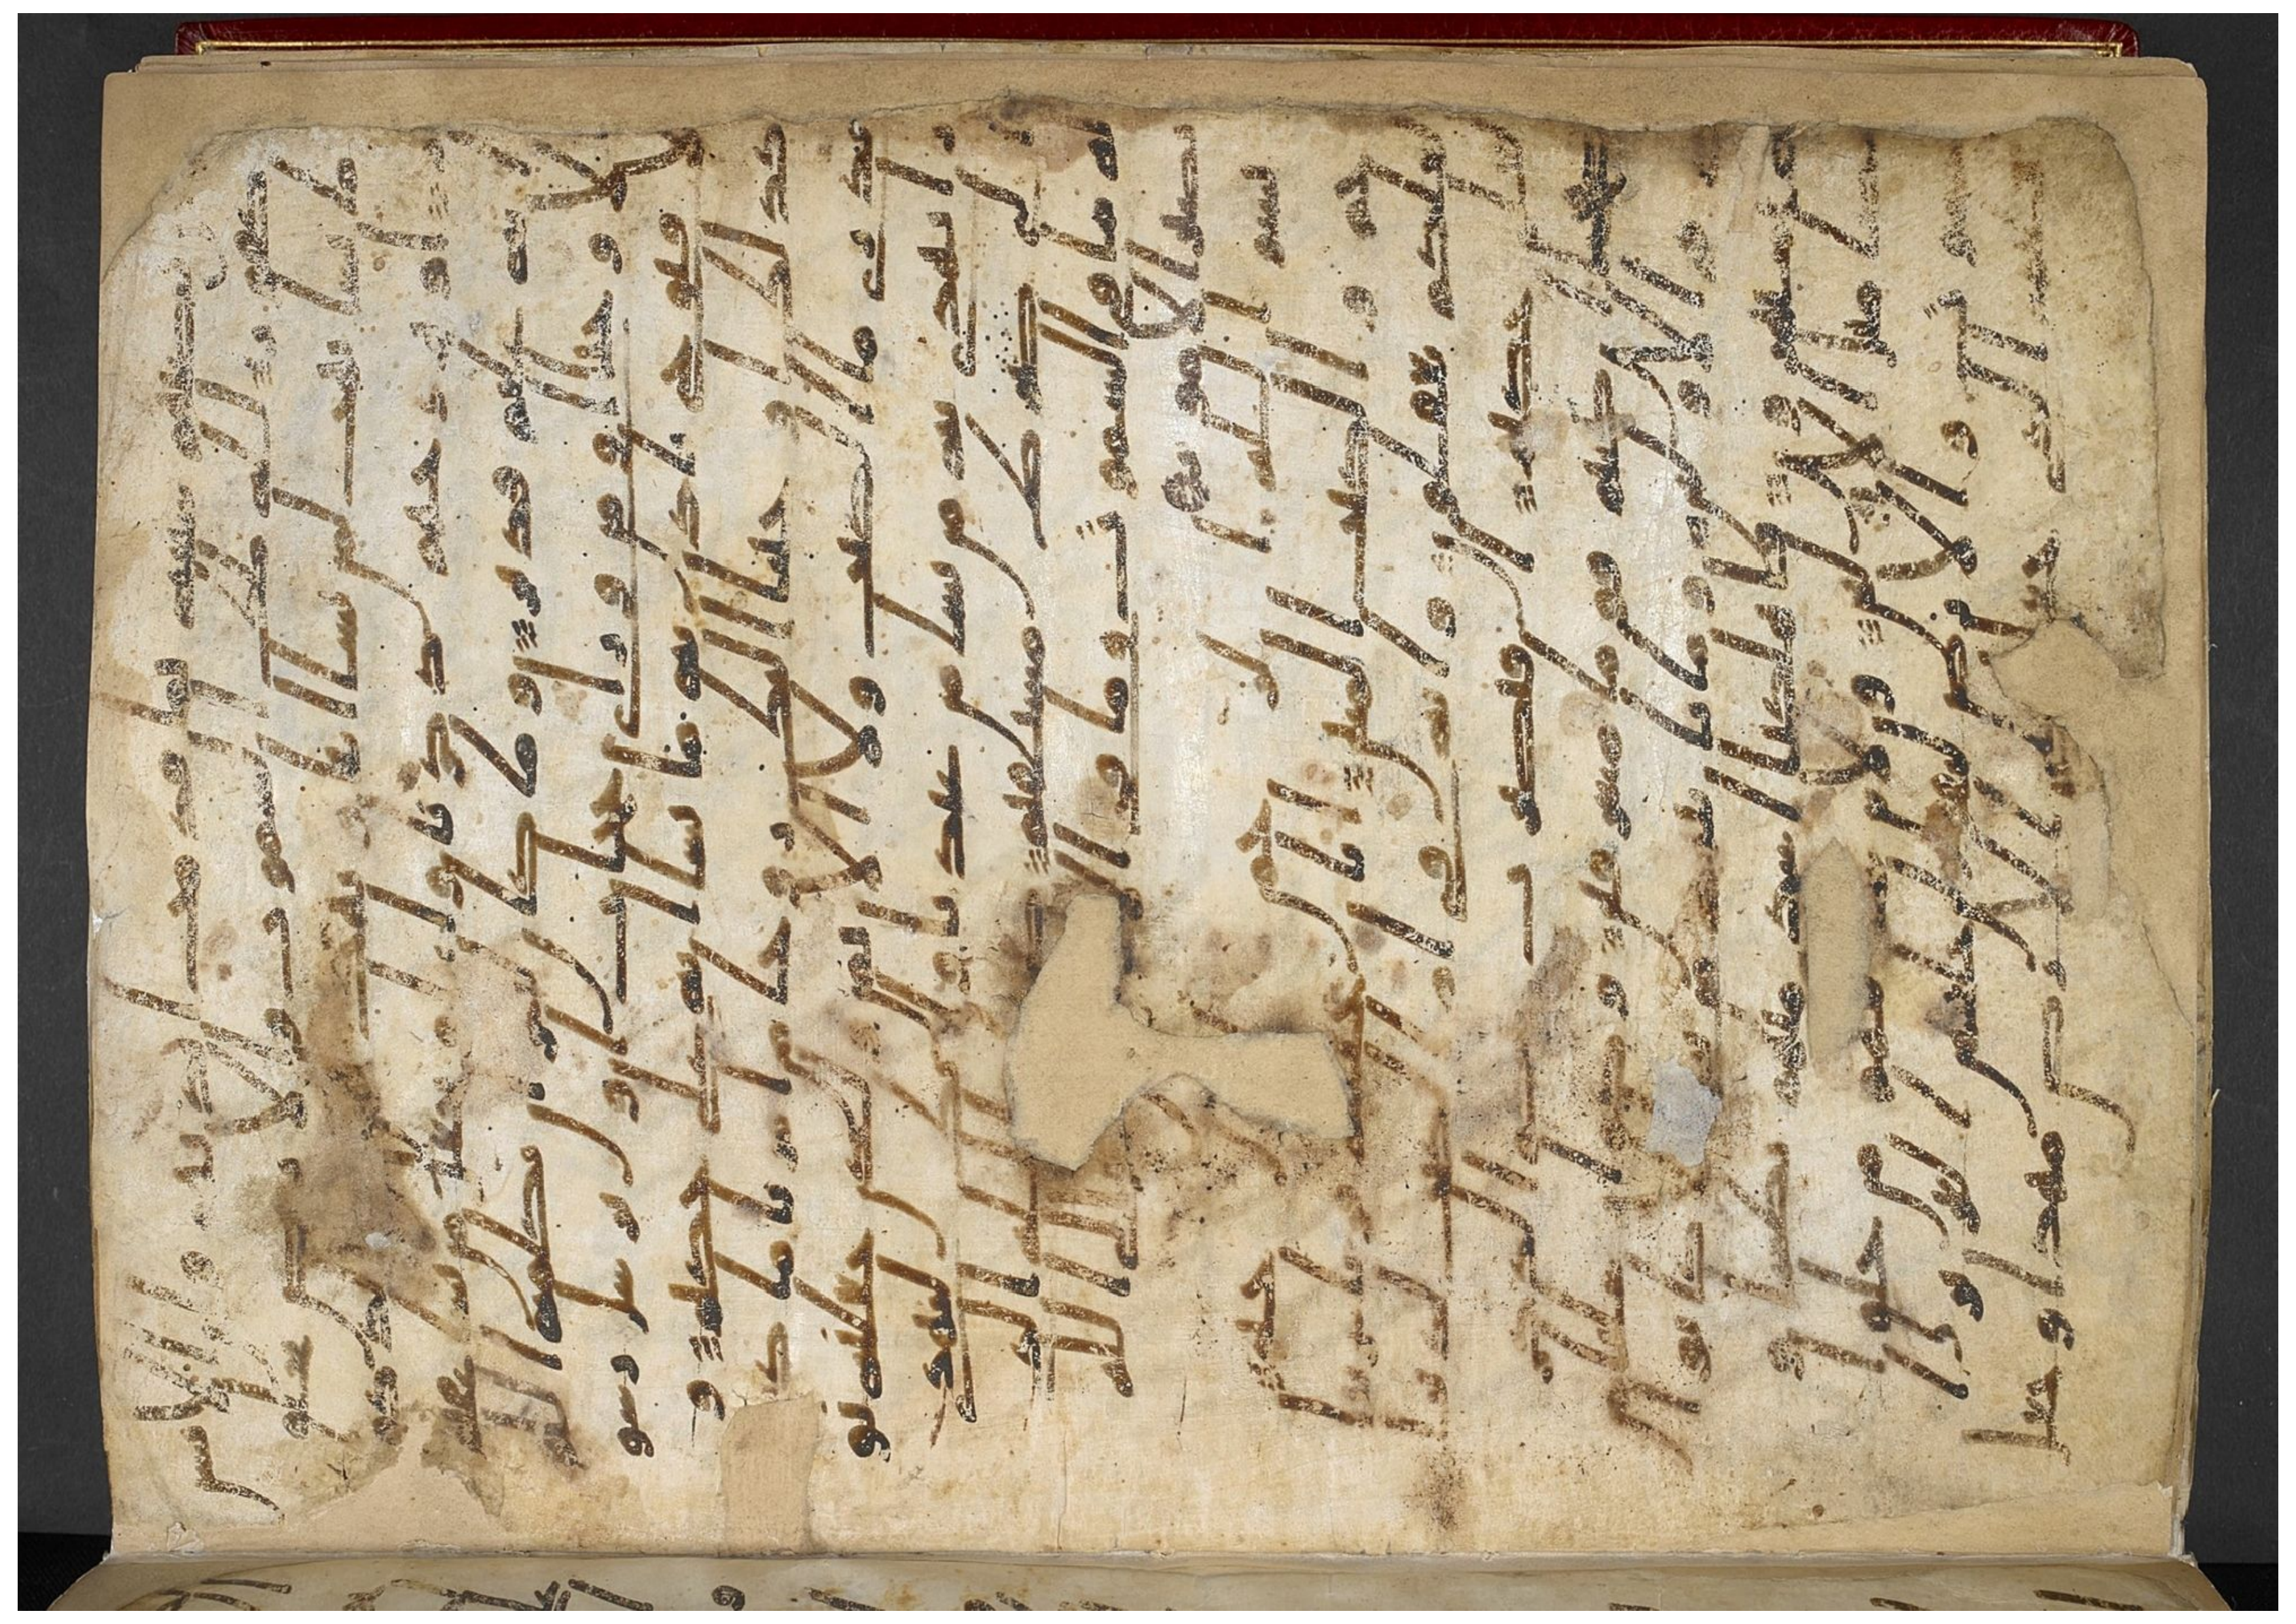 ن تصبهم سيه بما قدمت ايديهم فان الانسن
كفور لله ملك السموت والارض يخلق
ما يشا يهب لمن يشا انثا ويهب لمن يشا الذكو
ر او يزوجهم ذكرنا وانثا ويجعل من يشا عق
يما انه عليم قدير وما كان لبشر ان يكلمه الله
الا وحيا او من وراي حجاب او يرسل رسو
لا فيوحي باذنه ما يشا انه علي حكيم و
كذلك اوحينا اليك روحا من امرنا ما ك
نت تدري ما الكتب ولا الايمن ولكن جعلنه نو
را نهدي به من نشا من عبدنا وانك لتهدي
الى صرط مستقيم صرط الله الذي
له ما في السموت وما في الارض الا الى الله
تصير الامور
بسم الله الرحمن الرحيم حم
والكتب المبين انا جعلنه قرنا عربيا
لعلكم تعقلون وانه في ام الكتب لدينا
لعلي حكيم افنضرب عنكم الذكر صفحا ا
ن كنتم قوما مسرفين وكم ارسلنا من ن
بي في الاولين وما ياتيهم من نبي الا كانوا
به يستهزون فاهلكنا اشد منهم بطشا و
مضى مثل الاولين ولئن سالتهم من خلق ا
لسموت والارض ليقولن خلقهن العزيز ا
لعليم الذي جعل لكم الارض مهدا وجعل